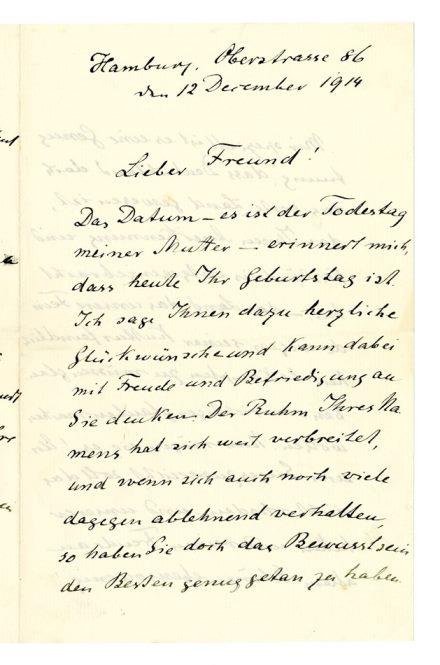 Hamburg, Oberstrasse 86
den 12 December 1914
Lieber Freund!
Das Datum – es ist der Todestag
meiner Mutter – erinnert mich,
dass heute Ihr Geburtstag ist.
Ich sage Ihnen dazu herzliche
Glückwünsche und kann dabei
mit Freude und Befriedigung an
Sie denken. Der Ruhm Ihres Na
mens hat sich weit verbreitet,
und wenn sich auch noch viele
dagegen ablehnend verhalten,
so haben Sie doch das Bewusstsein
den Besten genug getan zu haben.